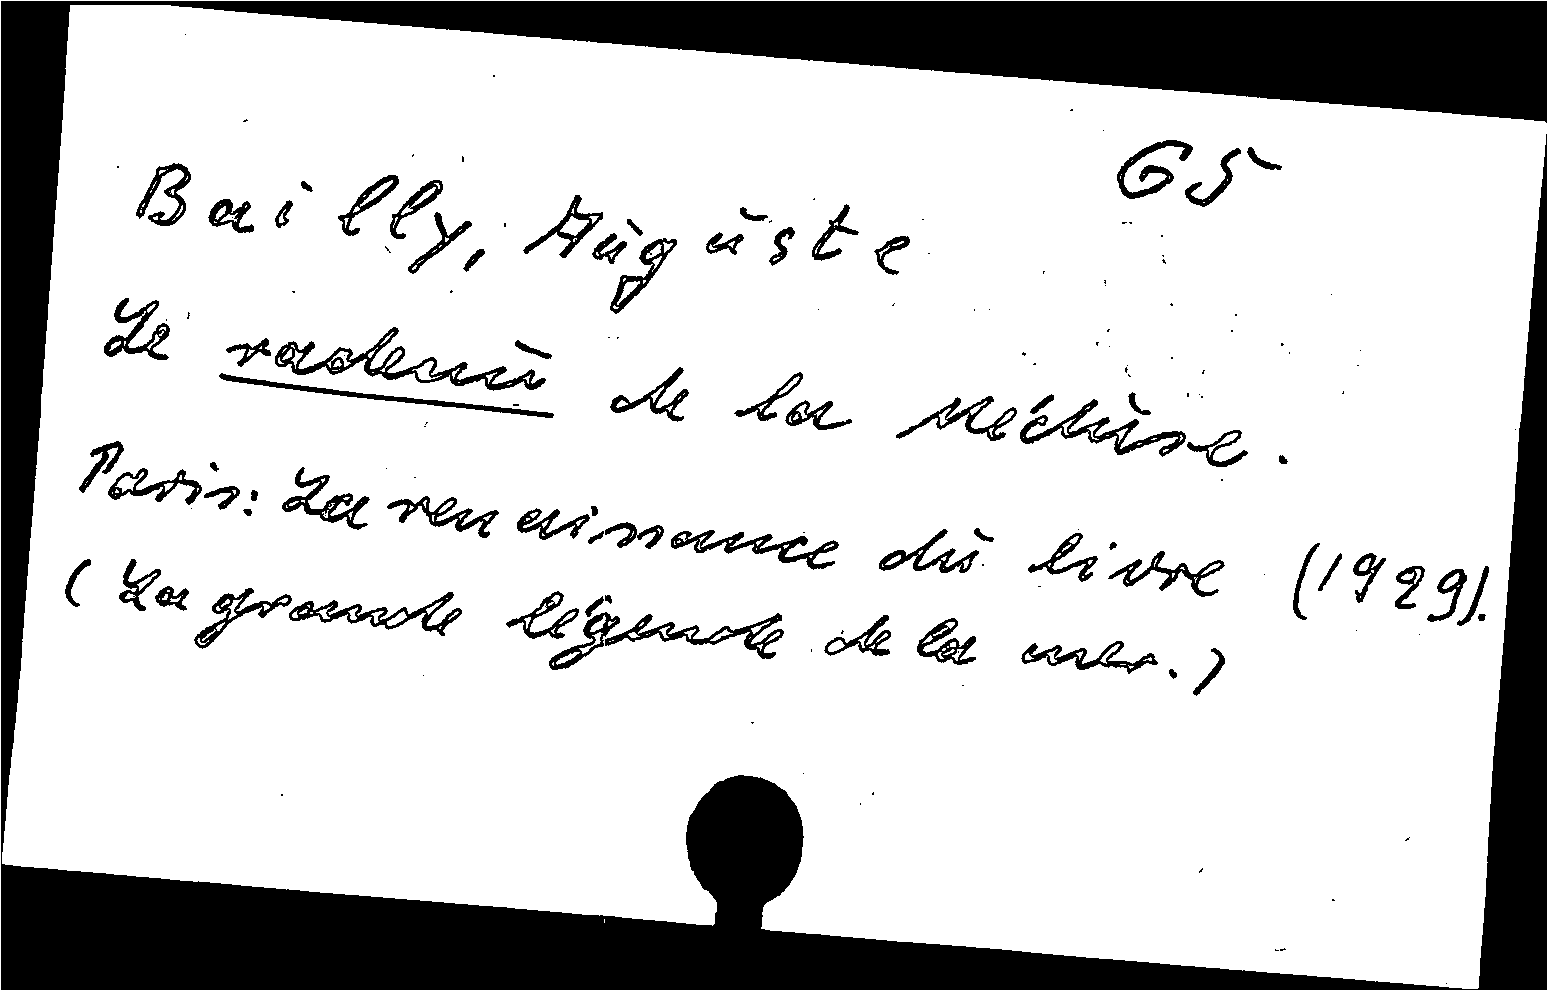 G5
Bailly, Auguste
Le radeau de la Méduse.
Paris: La renaissance du livre (1929).
(La grande légende de la mer.)